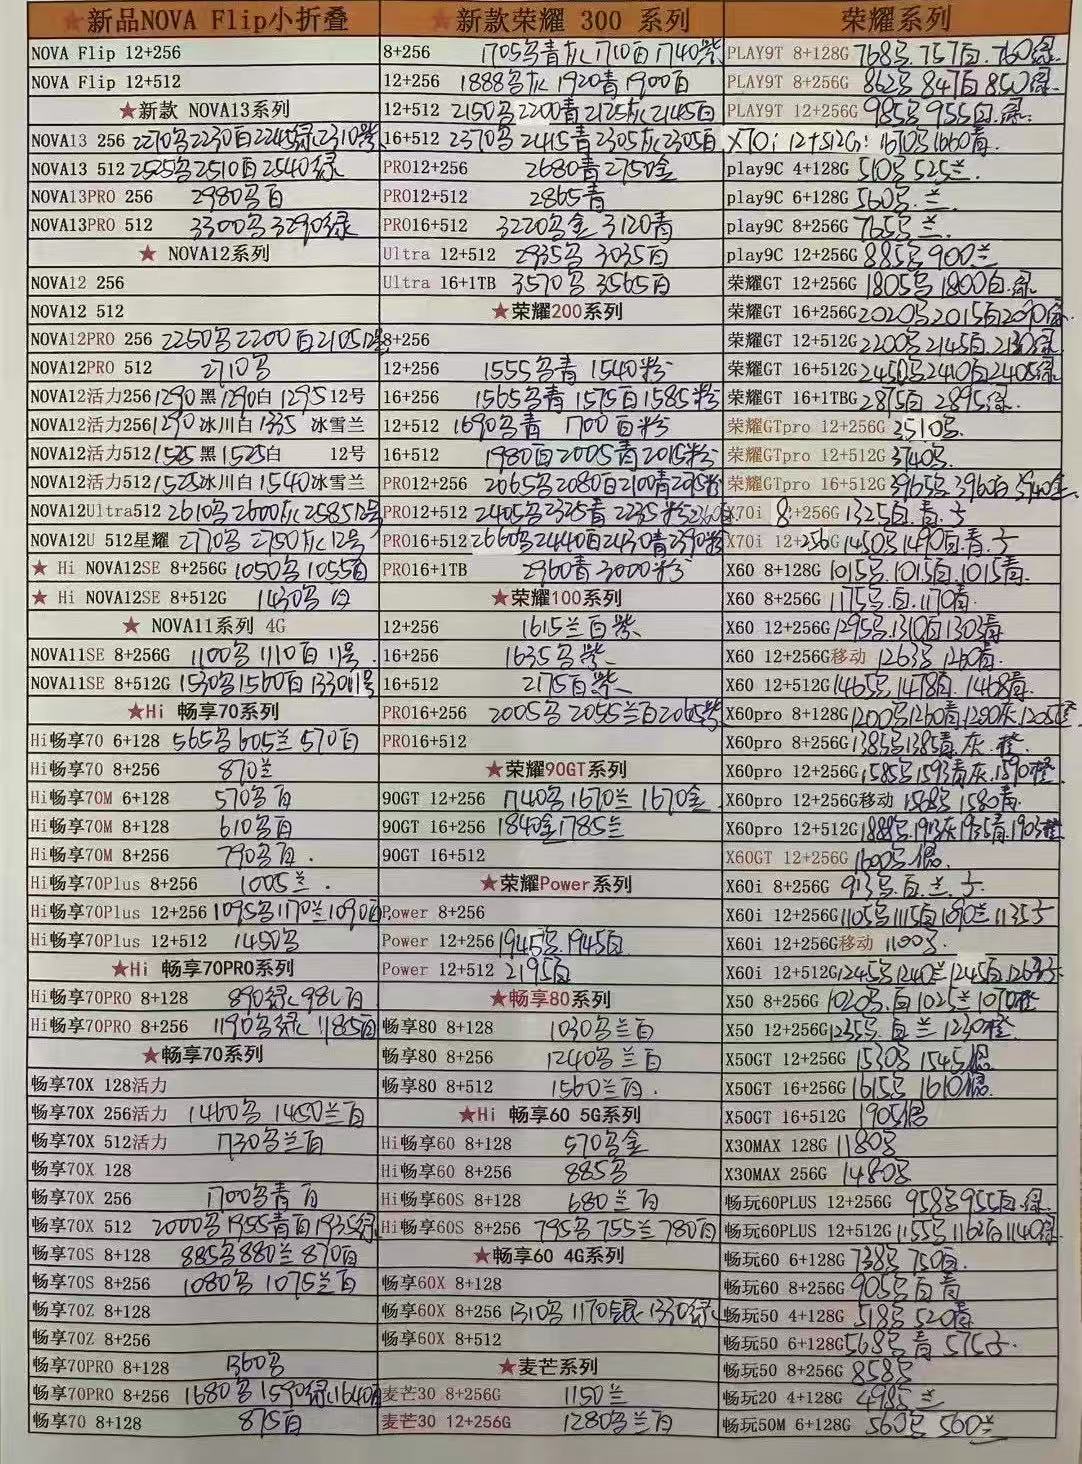 ★新品NOVA Flip小折叠
NOVA Flip 12+256
NOVA Flip 12+512
★新款 NOVA13系列
NOVA13 256 2270黑2230白2245绿2310紫
NOVA13 512 2525黑2510白2540绿
NOVA13PRO 256 2980黑白
NOVA13PRO 512 3300黑3290绿
★ NOVA12系列
NOVA12 256
NOVA12 512
NOVA12PRO 256 2250黑2200白210512号
NOVA12PRO 512 2710黑
NOVA12活力256 1290黑1290白1295 12号
NOVA12活力256 1290冰川白1335 冰雪兰
NOVA12活力512 1525黑1525白 12号
NOVA12活力512 1525冰川白1540冰雪兰
NOVA12Ultra512 2610黑2600灰258512号
NOVA12U 512星耀 2770黑2750灰12号
★ Hi NOVA12SE 8+256G 1050黑1055白
★ Hi NOVA12SE 8+512G 1430黑白
★ NOVA11系列 4G
NOVA11SE 8+256G 1100黑1110白11号
NOVA11SE 8+512G 1530黑1560白133011号
★Hi 畅享70系列
Hi畅享70 6+128 565黑605兰570白
Hi畅享70 8+256 870兰
Hi畅享70M 6+128 570黑白
Hi畅享70M 8+128 610黑白
Hi畅享70M 8+256 790黑白.
Hi畅享70Plus 8+256 1005兰.
Hi畅享70Plus 12+256 1095黑1170兰1090白
Hi畅享70Plus 12+512 1450黑
★Hi 畅享70PRO系列
Hi畅享70PRO 8+128 890绿
Hi畅享70PRO 8+256 1190黑绿1185白
★畅享70系列
畅享70X 128活力
畅享70X 256活力 1460黑1450兰白
畅享70X 512活力 1730黑兰白
畅享70X 128
畅享70X 256 1700黑青白
畅享70X 512 2000黑1955青白1935绿
畅享70S 8+128 885黑880兰870白
畅享70S 8+256 1080黑1075兰白
畅享70Z 8+128
畅享70Z 8+256
畅享70PRO 8+128 1360黑
畅享70PRO 8+256 1680黑1590绿1640白
畅享70 8+128 875白
★新款荣耀 300 系列
8+256 1705黑青灰1710白1740紫
12+256 1888黑灰1920青1900白
12+512 2150黑2200青2125灰2145白
16+512 2370黑2445青2305灰2305白
PRO12+256 2680青2750金
PRO12+512 2865青
PRO16+512 3220黑金3120青
Ultra 12+512 2935黑3035白
Ultra 16+1TB 3570黑3565白
★荣耀200系列
8+256
12+256 1555黑青1540粉
16+256 1565黑青1575白1585粉
12+512 1690黑青1700白粉
16+512 1980白2005青2015粉
PRO12+256 2065黑2080白2100青2095粉
PRO12+512 2405黑2325青2235粉
PRO16+512 2660黑2440白2430青2390粉
PRO16+1TB 2960青3000粉
★荣耀100系列
12+256 1615兰白紫
16+256 1635黑紫
16+512 2175白紫
PRO16+256 2005黑2055兰白2065紫
PRO16+512
★荣耀90GT系列
90GT 12+256 1740黑1670兰1670金
90GT 16+256 1840金1785兰
90GT 16+512
★荣耀Power系列
Power 8+256
Power 12+256 1945黑.1945白
Power 12+512 2195白
★畅享80系列
畅享80 8+128 1030黑兰白
畅享80 8+256 1240黑兰白
畅享80 8+512 1560兰白.
★Hi 畅享60 5G系列
Hi畅享60 8+128 570黑金
Hi畅享60 8+256 885黑
Hi畅享60S 8+128 680兰白
Hi畅享60S 8+256 795黑755兰780白
★畅享60 4G系列
畅享60X 8+128
畅享60X 8+256 1310黑1170银1330绿
畅享60X 8+512
★麦芒系列
麦芒30 8+256G 1150兰
麦芒30 12+256G 1280黑兰白
荣耀系列
PLAY9T 8+128G 768黑.757白.760绿
PLAY9T 8+256G 862黑847白850绿
PLAY9T 12+256G 985黑955白.绿
X70i 12+512G: 1670黑1660青
play9C 4+128G 510黑525兰.
play9C 6+128G 560黑.兰.
play9C 8+256G 765黑兰.
play9C 12+256G 885黑900兰
荣耀GT 12+256G 1805黑1800白.绿
荣耀GT 16+256G 2020黑2015白2090绿
荣耀GT 12+512G 2200黑2145白.2130绿
荣耀GT 16+512G 2450黑2410白2405绿
荣耀GT 16+1TBG 2875白2895绿.
荣耀GTpro 12+256G 3510黑.
荣耀GTpro 12+512G 3740黑.
荣耀GTpro 16+512G 3965黑3960白3940金
X70i 8+256G 1325白.青.
X70i 12+256G 1450黑1490白.青.
X60 8+128G 1015黑.1015白.1015青.
X60 8+256G 1175黑.白.1170青.
X60 12+256G 1295黑.1310白1303青
X60 12+256G移动 1263黑1260青.
X60 12+512G 1465黑1478白.1468青.
X60pro 8+128G 1200黑1260青1290灰1205橙
X60pro 8+256G 1385黑1385青.灰.橙.
X60pro 12+256G 1585黑1593青灰.1590橙
X60pro 12+256G移动 1568黑1580青.
X60pro 12+512G 1888黑1913灰1935青1903橙
X60GT 12+256G 1600黑.银.
X60i 8+256G 913黑.白.兰.
X60i 12+256G 1105黑1115白1090兰1135
X60i 12+256G移动 1100黑.
X60i 12+512G 1245黑1240兰1245白
X50 8+256G 1020黑.白1025兰1070橙
X50 12+256G 1235黑.白兰1230橙
X50GT 12+256G 1530黑1545银
X50GT 16+256G 1615黑1610银
X50GT 16+512G 1905银
X30MAX 128G 1180黑
X30MAX 256G 1480黑
畅玩60PLUS 12+256G 958黑955白.绿
畅玩60PLUS 12+512G 1155黑1160白1140绿
畅玩60 6+128G 738黑750白.
畅玩60 8+256G 905黑白青
畅玩50 4+128G 518黑520青
畅玩50 6+128G 568黑青575
畅玩50 8+256G 858黑
畅玩20 4+128G 498黑兰
畅玩50M 6+128G 560黑560兰